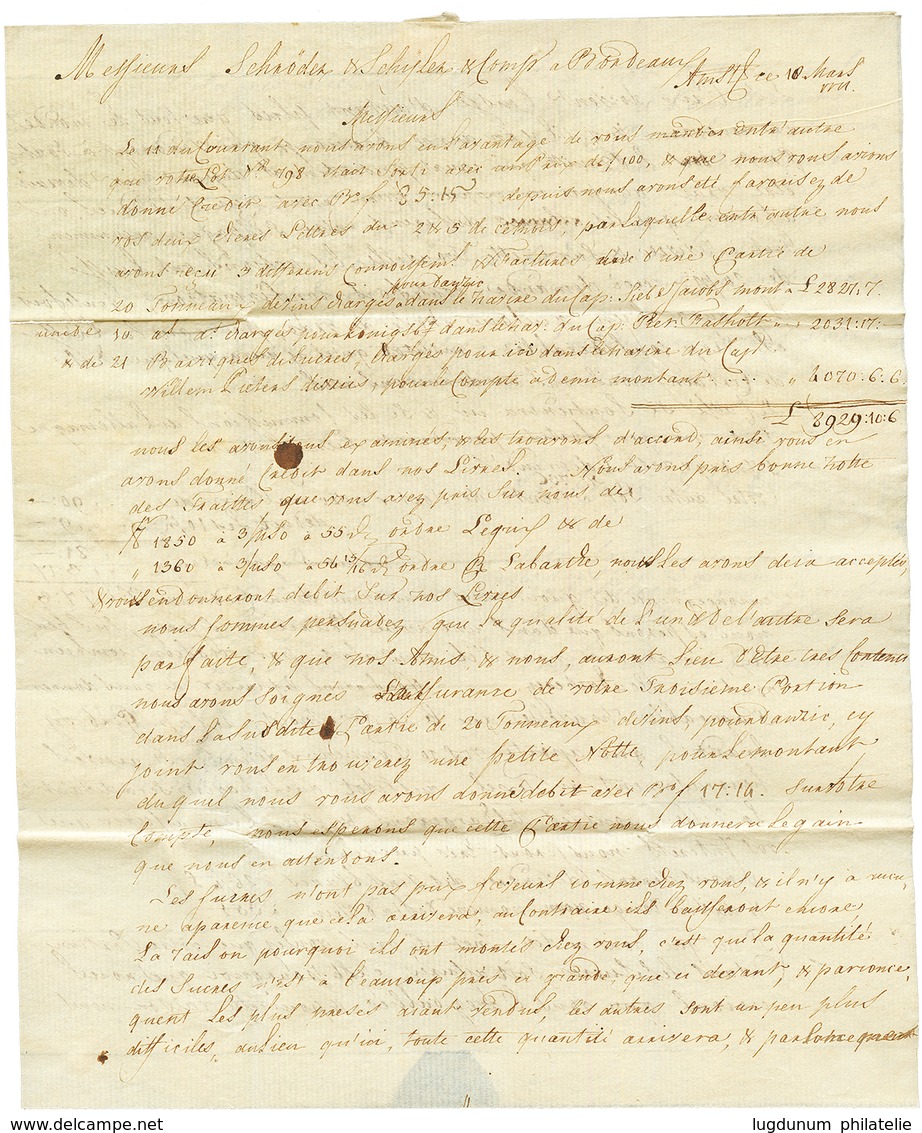 Messieurs Schröder & Schÿler & Comp a Bordeaux
Amstd ce 18 Mars
Messieurs
Le 11 du Courrant nous avons eu l'avantage de vous mander entr'autre
que votre Lot No 798 etant Sorti avec un Prix de f 100, & que nous vous avions
donné Credit avec Bof 85:15 depuis nous avons été favorisez de
vos deux cheres Lettres du 2 & 5 de ce mois, par laquelle entr'autre nous
avons reçu 3 differens Connoissemt & Factures d'une Partie de
pour Danzic
20 Tonneaux de vins chargés dans le navire du Cap: Siebe Jacobs mont a £ 2827:7.
une de 10 do do chargés pour Konigsbg dans le nav: du Cap: Peter " " 2031:17:-
& de 21 Barriques de Sucres chargés pour ici dans le navire du Capt
Willem Pieters de Vries, pour Compte a demi montant " 4070:6:6
£ 8929:10:6
nous les avons examinés, & les trouvons d'accord, ainsi vous en
avons donné Credit dans nos Livres. Nous avons pris bonne notte
des Traittes, que vous avez pris Sur nous, de
1850 a 3/uso a 55 ordre Lequin & de
" 1360 a 3/uso a 54 13/16 ordre P Labarthe, nous les avons deia acceptés,
& vous en donneront debit Sur nos Livres
nous sommes persuadez que la qualité de l'un & de l'autre sera
parfaite, & que nos Amis & nous, auront lieu d'Etre tres Contents
nous avons soignés l'assurance de votre Troisieme Portion
dans la Susdite Partie de 20 Tonneaux de vins, pour Danzic, cy
joint vous en trouverez une petite Notte, pour le montant
du quel nous vous avons donné debit avec Bof 17:14. Sur votre
Compte, nous esperons que cette Partie nous donnera le gain
que nous en attendons.
Les sucres n'ont pas pris faveurs comme chez vous, & il n'y a aucu,
ne aparence que cela arrivera, au Contraire ils baisseront encore,
La raison pourquoi ils ont montés chez vous, c'est que la quantité
des Sucres n'est a beaucoup pres si grande, que ci devant, & par conse,
quent les plus pressés aiant vendus, les autres sont un peu plus
difficiles, au lieu qu'ici, toute cette quantité arrivera, & par consequent
lugdunum philatelie
www.delcampe.net